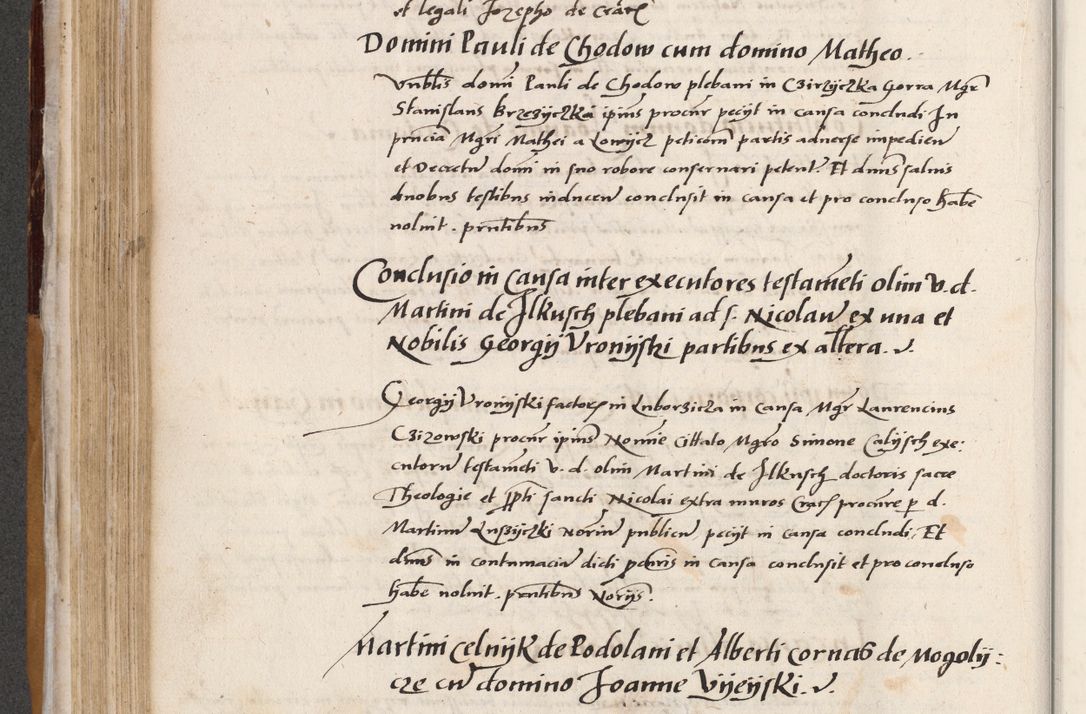 et legali Jozepho de Crac
Domini Pauli de Chodow cum domino Matheo.
Vnblis domi Pauli de Chodow plebani in Czirzyczka Gorra Mgr
Stanislaus Brzezyczkÿ ipius procur pecijt in causa concludi In
pncia Mgri Mathei a Lowijcz peticom partis aduerse impedien
et Decretu domi in suo robore conseruari petent. Et dnus saluis
duobus testibus inducen conclusit in causa et pro concluso habe
voluit. pntibus
Conclusio in causa inter executores testameti olim v. d.
Martini de Jlkusch plebani ad s. Nicolau ex una et
Nobilis Georgij Vronijski partibus ex altera. v.
Georgij Vronijski factor in Luborzicza in causa Mgr Laurencius
Czizowski procur ipius Nomine Cittato Mgro Simone Calijsch exe:
cutoru testameti v. d. olim Martini de Jlkusch doctoris sacre
Theologie et ppti sancti Nicolai extra muros Crac procure p d.
Martinu Luszijczki Noriu publicu pecijt in causa concludi, Et
dnus in contumacia dicti pcuris in causa conclusit et pro concluso
habe voluit. pntibus Norijs.
Martini Celnijk de Podolani et Alberti Cornas de Mogolij:
cze cu domino Joanne Vijeijski. v.